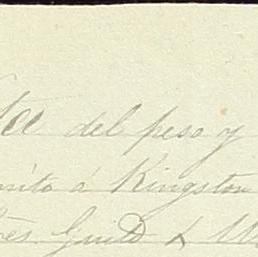 ta del peso y
nito á Kingston
res. Guild &